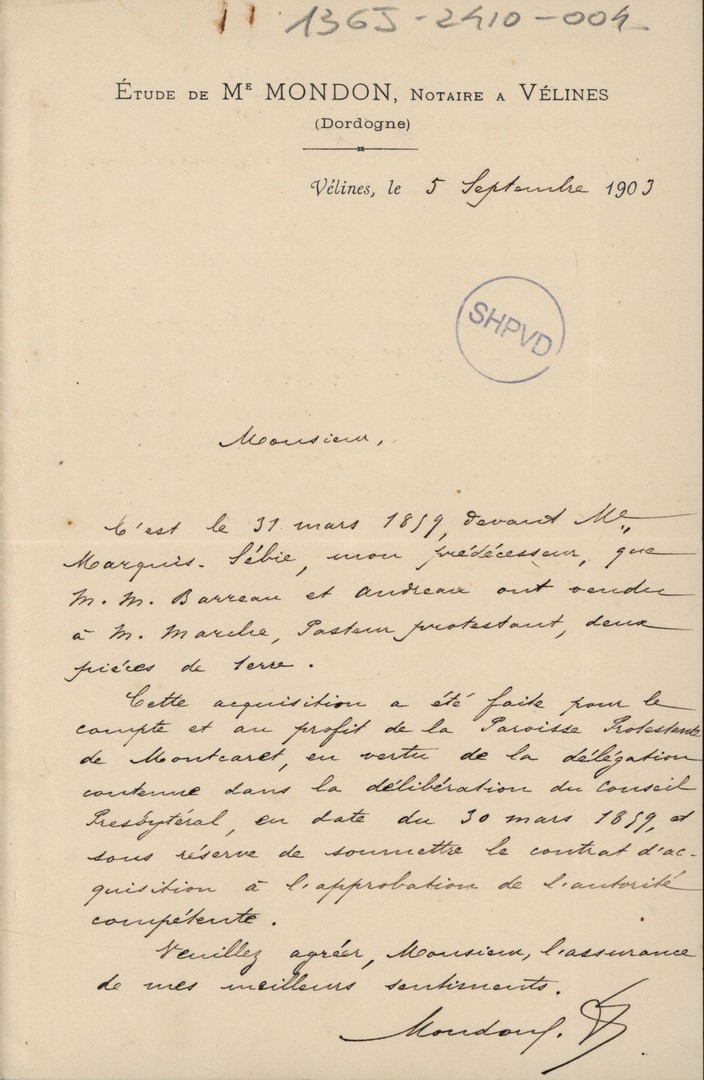 136J-2410-004
ÉTUDE DE Mᴱ MONDON, NOTAIRE A VÉLINES
(Dordogne)
Vélines, le 5 Septembre 1903
SHPVD
Monsieur,
C'est le 31 mars 1859, devant Mᵉ
Marquis-Sébie, mon prédécesseur, que
M. M. Barreau et Andreau ont vendu
à M. Marche, Pasteur protestant, deux
pièces de terre.
Cette acquisition a été faite pour le
compte et au profit de la Paroisse Protestante
de Montcaret, en vertu de la délégation
contenue dans la délibération du Conseil
Presbytéral, en date du 30 mars 1859, et
sous réserve de soumettre le contrat d'ac-
quisition à l'approbation de l'autorité
compétente.
Veuillez agréer, Monsieur, l'assurance
de mes meilleurs sentiments.
Mondon